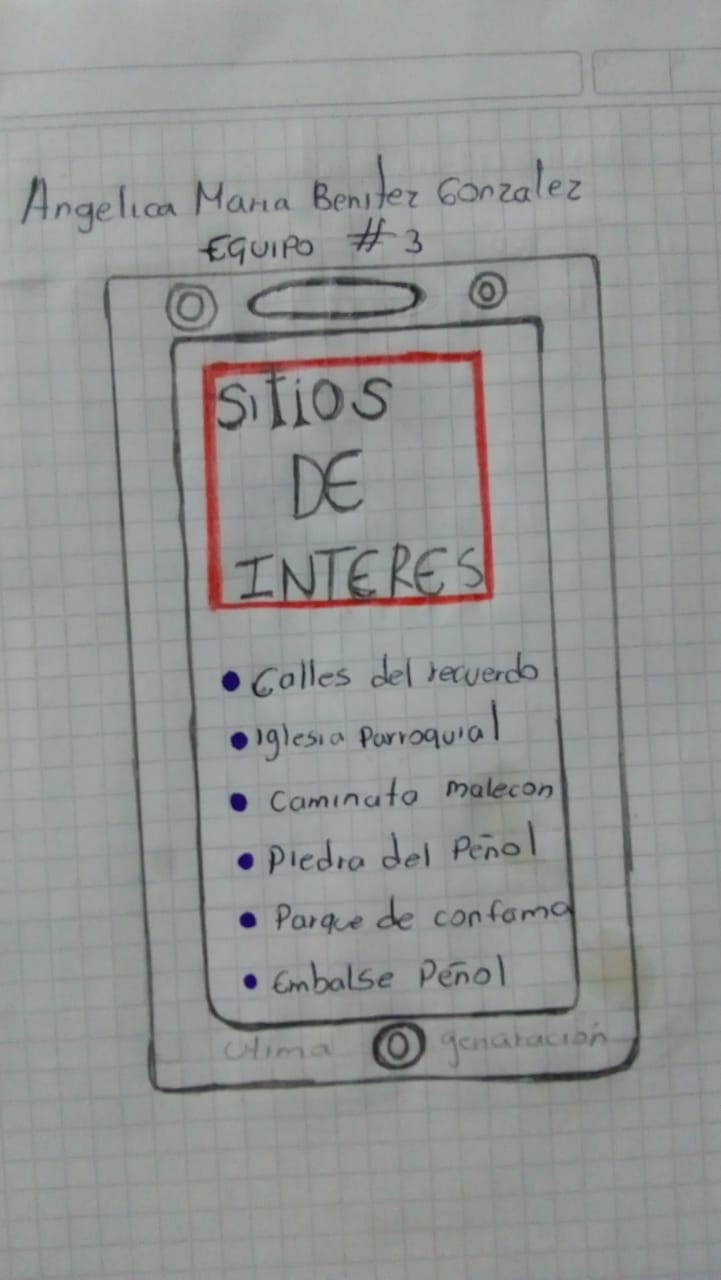 Angelica Maria Benitez Gonzalez
EQUIPO # 3
SITIOS
DE
INTERES
• Calles del recuerdo
• Iglesia Parroquial
• Caminata malecon
• Piedra del Peñol
• Parque de confama
• Embalse Peñol
genaración